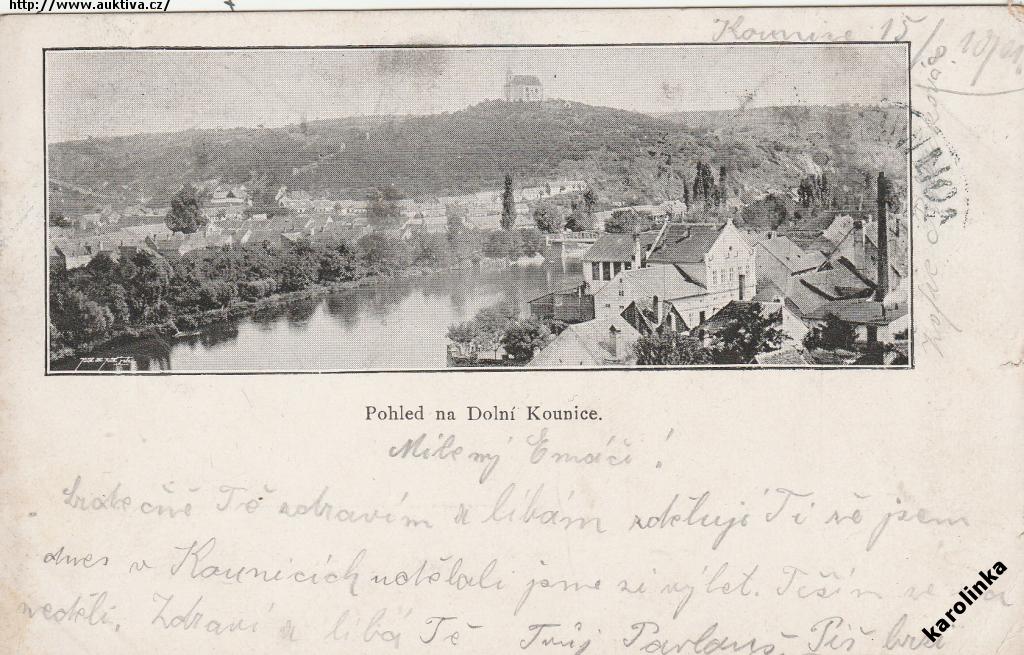 http://www.auktiva.cz/
Kounice 15/
Pohled na Dolní Kounice.
Milený Emáčí!
Srdečně Tě zdravím a líbám sděluji Ti že jsem
dnes v Kounicích udělali jsme si výlet. Těším se na
neděli. Zdraví a líbá Tě Tvůj Pavlouš. Piš brzo
karolinka